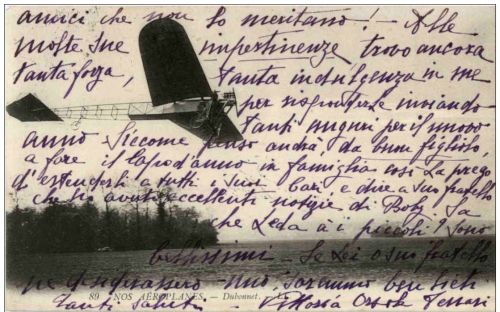 amici che non lo meritano! - Alle
molte sue impertinenze trovo ancora
tanta forza, tanta indulgenza in me
per risponderle inviando
tanti auguri per il nuovo
anno. Siccome penso andrà, da buon figliolo,
a fare il Capo d'anno in famiglia così La prego
d'estenderli a tutti i Suoi Cari e dire a suo fratello
che ho avuto eccellenti notizie di Boby. Sa
che Leda à i piccoli? Sono
bellissimi - Se Lei o suo fratello
ne desiderassero uno, saremmo ben lieti
Tanti saluti Ferrari
89 NOS AÉROPLANES. - Dubonnet. - LL